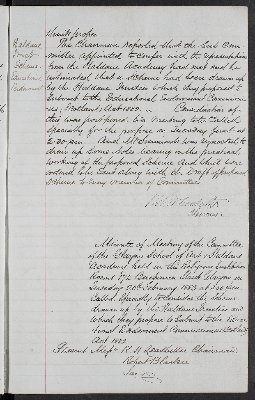 Haldane
Trust
Scheme
The Chairman reported that the Sub Com-
mittee appointed to confer with the representatives
from the Haldane Academy had met and he
intimated that a Scheme had been drawn up
by the Haldane Trustees which they proposed to
submit to the Educational Endowment Commission-
ers, Scotland, Act 1882. Consideration of
this was postponed to a Meeting to be called
specially for the purpose on Tuesday first at
2.30 p.m. And Mr Simmonds was requested to
draw up some Notes bearing on the practical
working of the proposed Scheme and which were
to be sent along with the Draft
Scheme to every Member of Committee
Minute of Meeting of the Committee
of the Glasgow School of Art & Haldane
Academy held in the Religious Institution
Rooms 172 Buchanan Street Glasgow on
Tuesday 20th February 1883 at 2.30 p.m.
called specially to consider the Scheme
drawn up by the Haldane Trustees and
which they propose to submit to the Educa-
tional Endowment Commissioners Scotland
Act 1882
Present Messrs R. H. Leadbetter Chairman
Robert Blackie
Jas